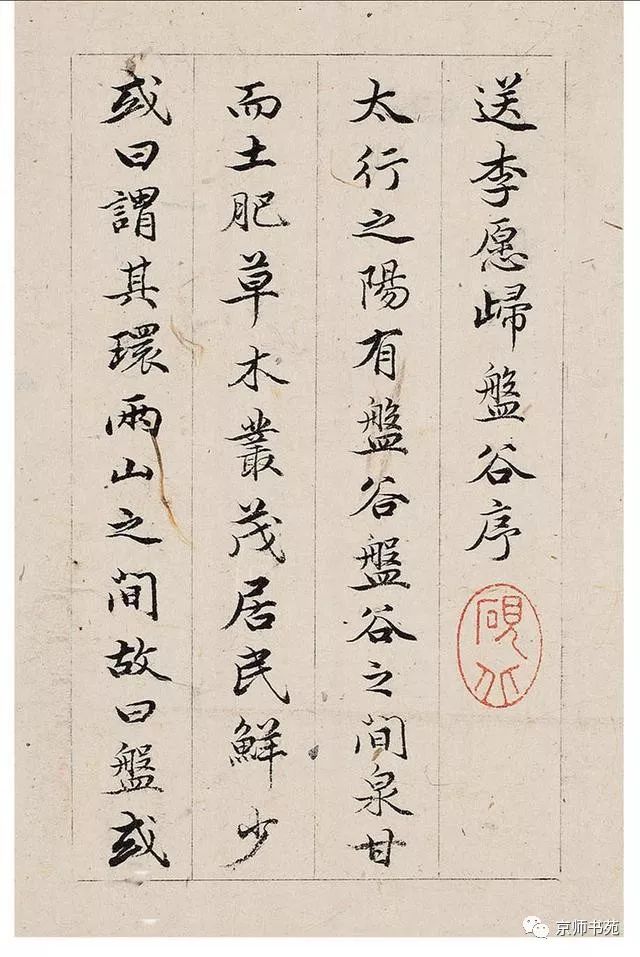 送李愿歸盤谷序
太行之陽有盤谷盤谷之間泉甘
而土肥草木叢茂居民鮮少
或曰謂其環兩山之間故曰盤或
京师书苑